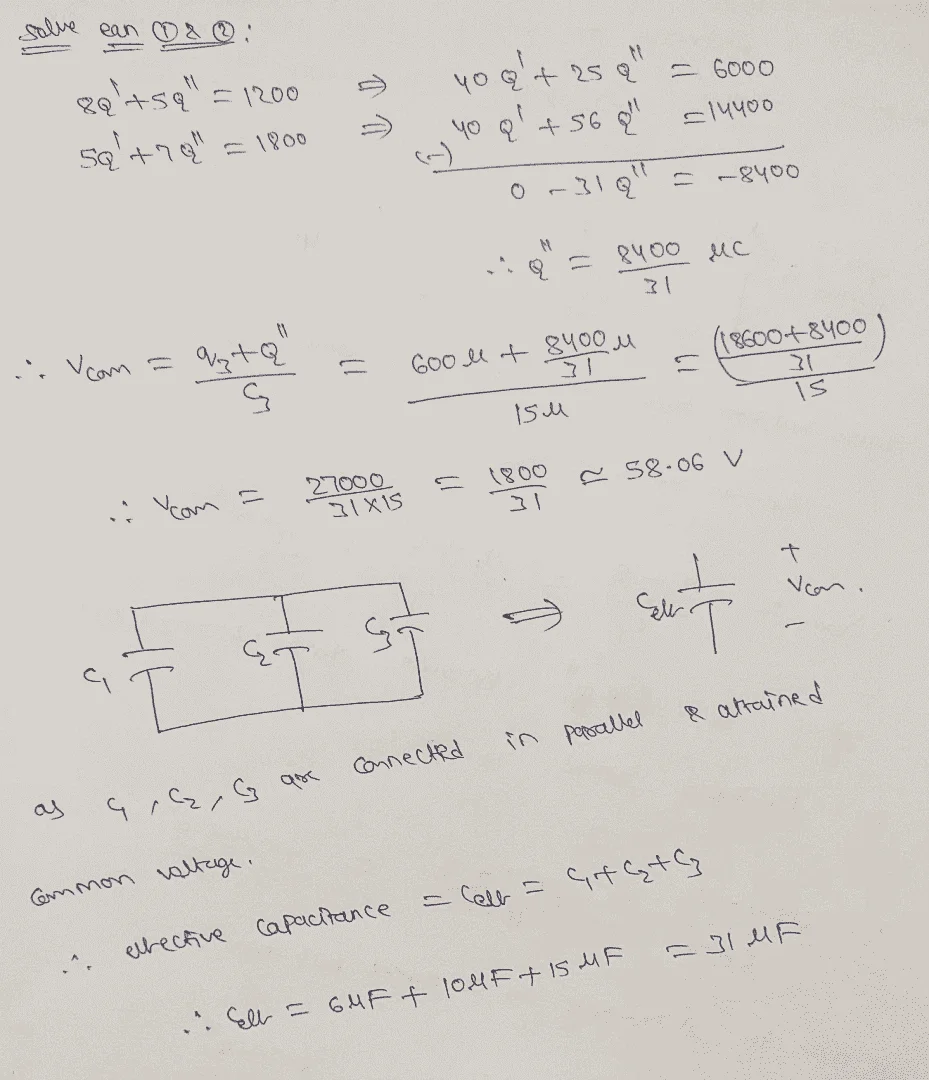 solve eqn ① & ②:
8Q' + 5Q'' = 1200 ⇒ 40 Q' + 25 Q'' = 6000
5Q' + 7Q'' = 1800 ⇒ 40 Q' + 56 Q'' = 14400
(-)
0 - 31 Q'' = -8400
∴ Q'' = 8400/31 μC
∴ Vcom = (q3 + Q'')/C3 = (600μ + 8400/31 μ)/15μ = ((18600+8400)/31)/15
∴ Vcom = 27000/(31×15) = 1800/31 ≃ 58.06 V
C1 C2 C3 ⇒ Ceff + Vcom. -
as C1, C2, C3 are connected in parallel & attained
common voltage.
∴ effective capacitance = Ceff = C1+C2+C3
∴ Ceff = 6μF + 10μF + 15μF = 31μF